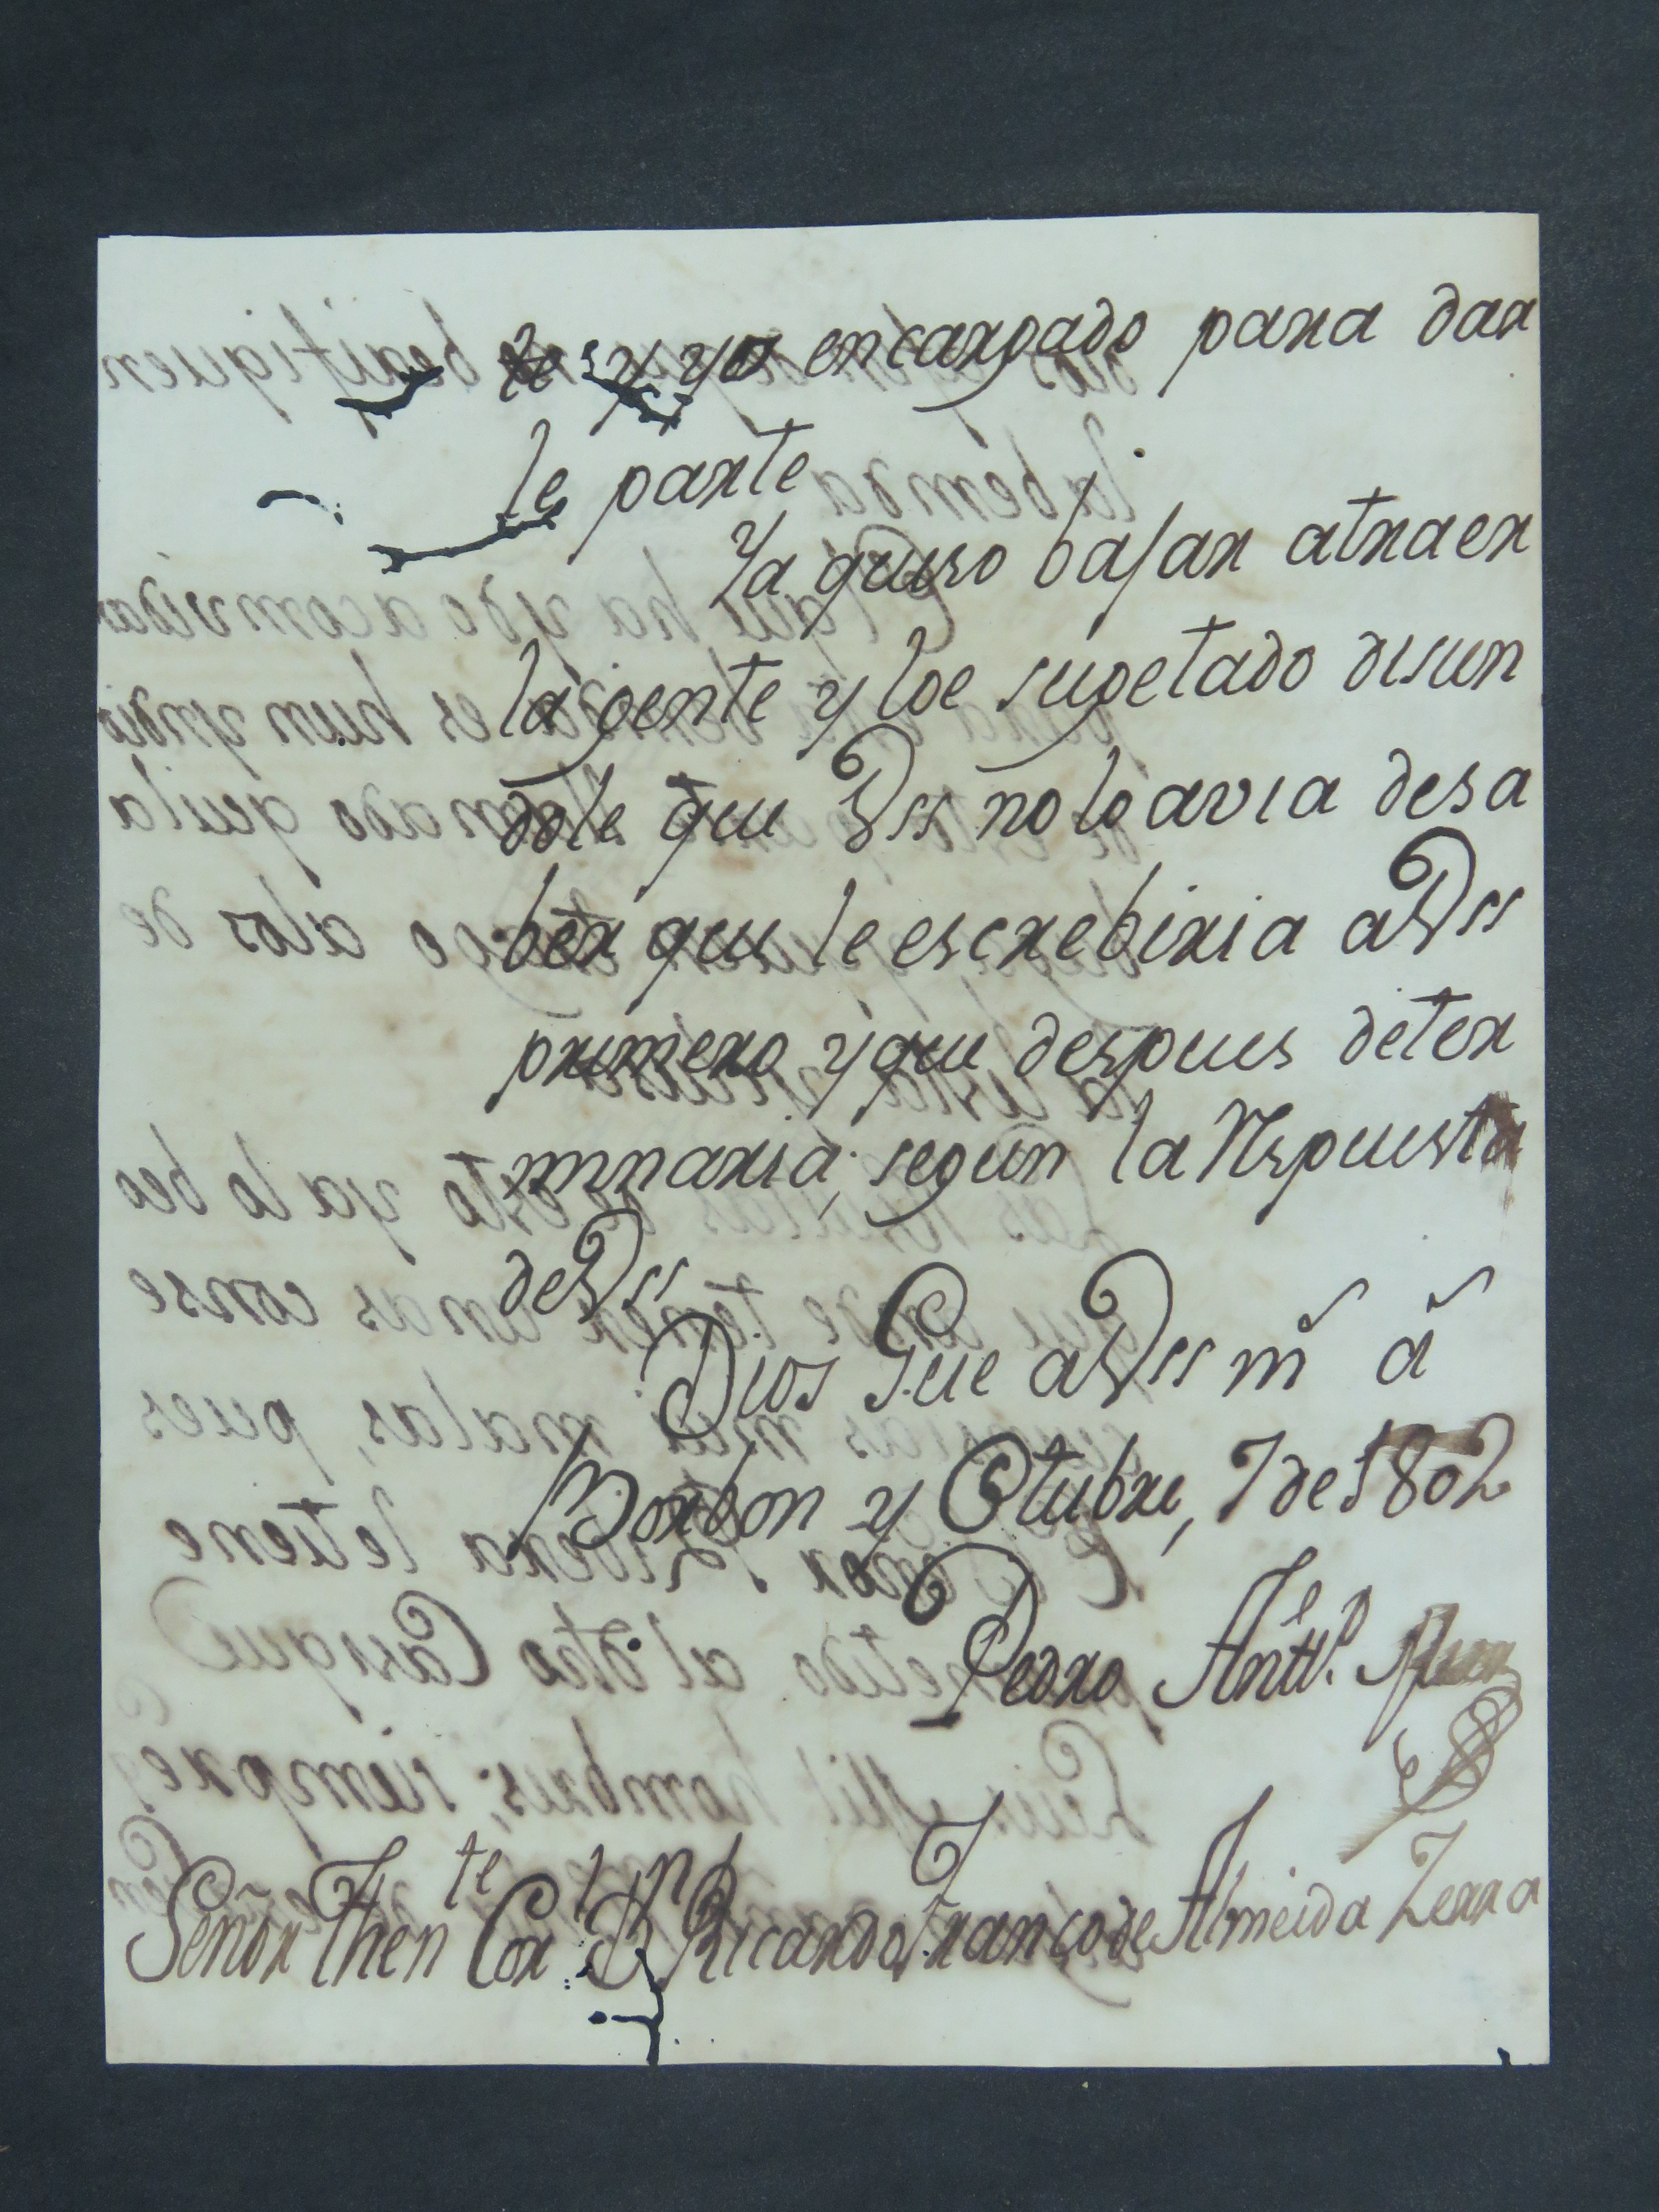 tes y yo encargado para dar
le parte
Ya quiso bajar atraer
la gente y loe sugetado disien
dole que Vss no lo avia desa
ber que le escrebiria aVss
primero yque despues deter
minaria, segun la Respuesta
deVss
Dios Gue aVss m̃ ã
Borbon y Otubre, 7 de 1802
Pedro Antto.
Señor Then te Cor l Dn Ricardo Franco de Almeida Zerra